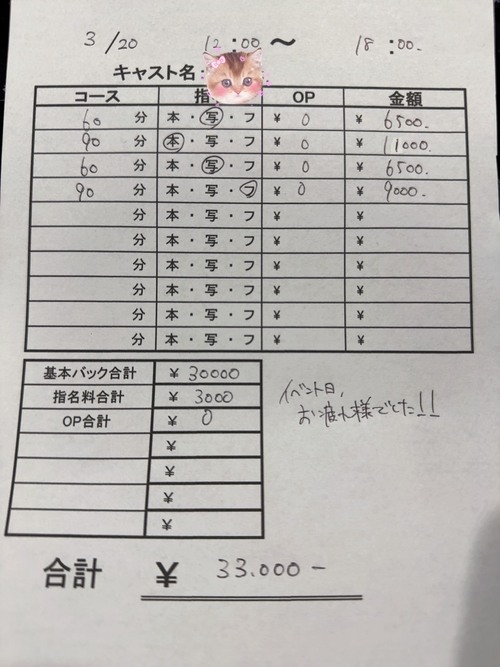 3/20 12:00 ～ 18:00.
キャスト名:
コース 指 OP 金額
60 分 本・写・フ ¥ 0 ¥ 6500.
90 分 本・写・フ ¥ 0 ¥ 11000.
60 分 本・写・フ ¥ 0 ¥ 6500.
90 分 本・写・フ ¥ 0 ¥ 9000.
分 本・写・フ ¥ ¥
分 本・写・フ ¥ ¥
分 本・写・フ ¥ ¥
分 本・写・フ ¥ ¥
分 本・写・フ ¥ ¥
分 本・写・フ ¥ ¥
基本バック合計 ¥ 30000
指名料合計 ¥ 3000
OP合計 ¥ 0
¥
¥
¥
¥
イベント日、
お疲れ様でした!!
合計 ¥ 33.000-